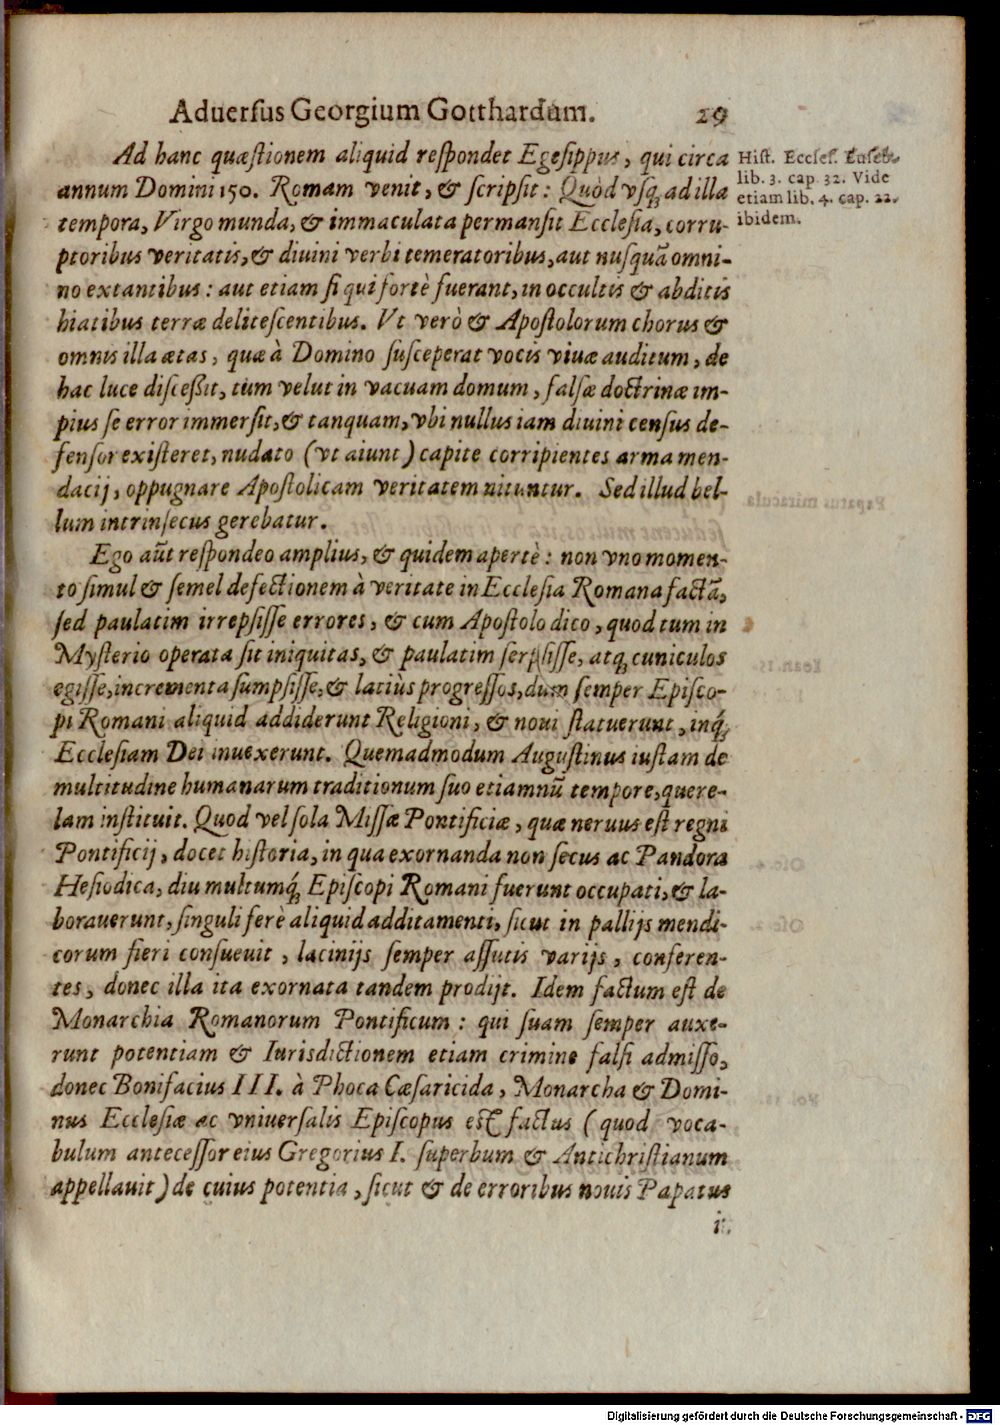 Aduersus Georgium Gotthardum. 29
Ad hanc quæstionem aliquid respondet Egesippus, qui circa
annum Domini 150. Romam venit, & scripsit: Quòd vsq; ad illa
tempora, Virgo munda, & immaculata permansit Ecclesia, corru-
ptoribus veritatis, & diuini verbi temeratoribus, aut nusquã omni-
no extantibus: aut etiam si qui fortè fuerant, in occultis & abditis
hiatibus terræ delitescentibus. Vt verò & Apostolorum chorus &
omnis illa ætas, quæ à Domino susceperat vocis viuæ auditum, de
hac luce discessit, tum velut in vacuam domum, falsæ doctrinæ im-
pius se error immersit, & tanquam, vbi nullus iam diuini census de-
fensor existeret, nudato (vt aiunt) capite corripientes arma men-
dacij, oppugnare Apostolicam veritatem nituntur. Sed illud bel-
lum intrinsecus gerebatur.
Ego aũt respondeo amplius, & quidem apertè: non vno momen-
to simul & semel defectionem à veritate in Ecclesia Romana factã,
sed paulatim irrepsisse errores, & cum Apostolo dico, quod tum in
Mysterio operata sit iniquitas, & paulatim serpsisse, atq; cuniculos
egisse, incrementa sumpsisse, & latiùs progressos, dum semper Episco-
pi Romani aliquid addiderunt Religioni, & noui statuerunt, inq;
Ecclesiam Dei inuexerunt. Quemadmodum Augustinus iustam de
multitudine humanarum traditionum suo etiamnũ tempore, quere-
lam instituit. Quod vel sola Missæ Pontificiæ, quæ neruus est regni
Pontificij, docet historia, in qua exornanda non secus ac Pandora
Hesiodica, diu multumq; Episcopi Romani fuerunt occupati, & la-
borauerunt, singuli ferè aliquid additamenti, sicut in pallijs mendi-
corum fieri consueuit, lacinijs semper assutis varijs, conferen-
tes, donec illa ita exornata tandem prodijt. Idem factum est de
Monarchia Romanorum Pontificum: qui suam semper auxe-
runt potentiam & Iurisdictionem etiam crimine falsi admisso,
donec Bonifacius III. à Phoca Cæsaricida, Monarcha & Domi-
nus Ecclesiæ ac vniuersalis Episcopus est factus (quod voca-
bulum antecessor eius Gregorius I. superbum & Antichristianum
appellauit) de cuius potentia, sicut & de erroribus nouis Papatus
Hist. Eccles. Euseb.
lib. 3. cap. 32. Vide
etiam lib. 4. cap. 22.
ibidem.
Digitalisierung gefördert durch die Deutsche Forschungsgemeinschaft - DFG